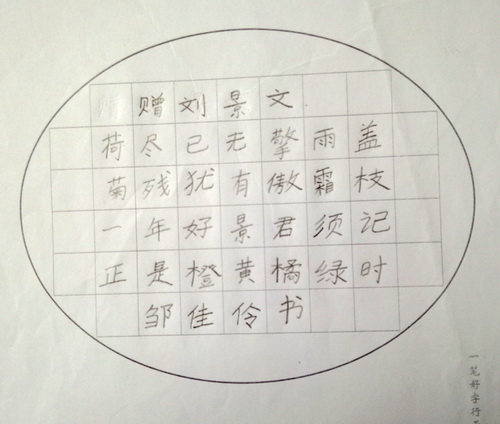 赠刘景文
荷尽已无擎雨盖
菊残犹有傲霜枝
一年好景君须记
正是橙黄橘绿时
邹佳伶书
一笔好字行